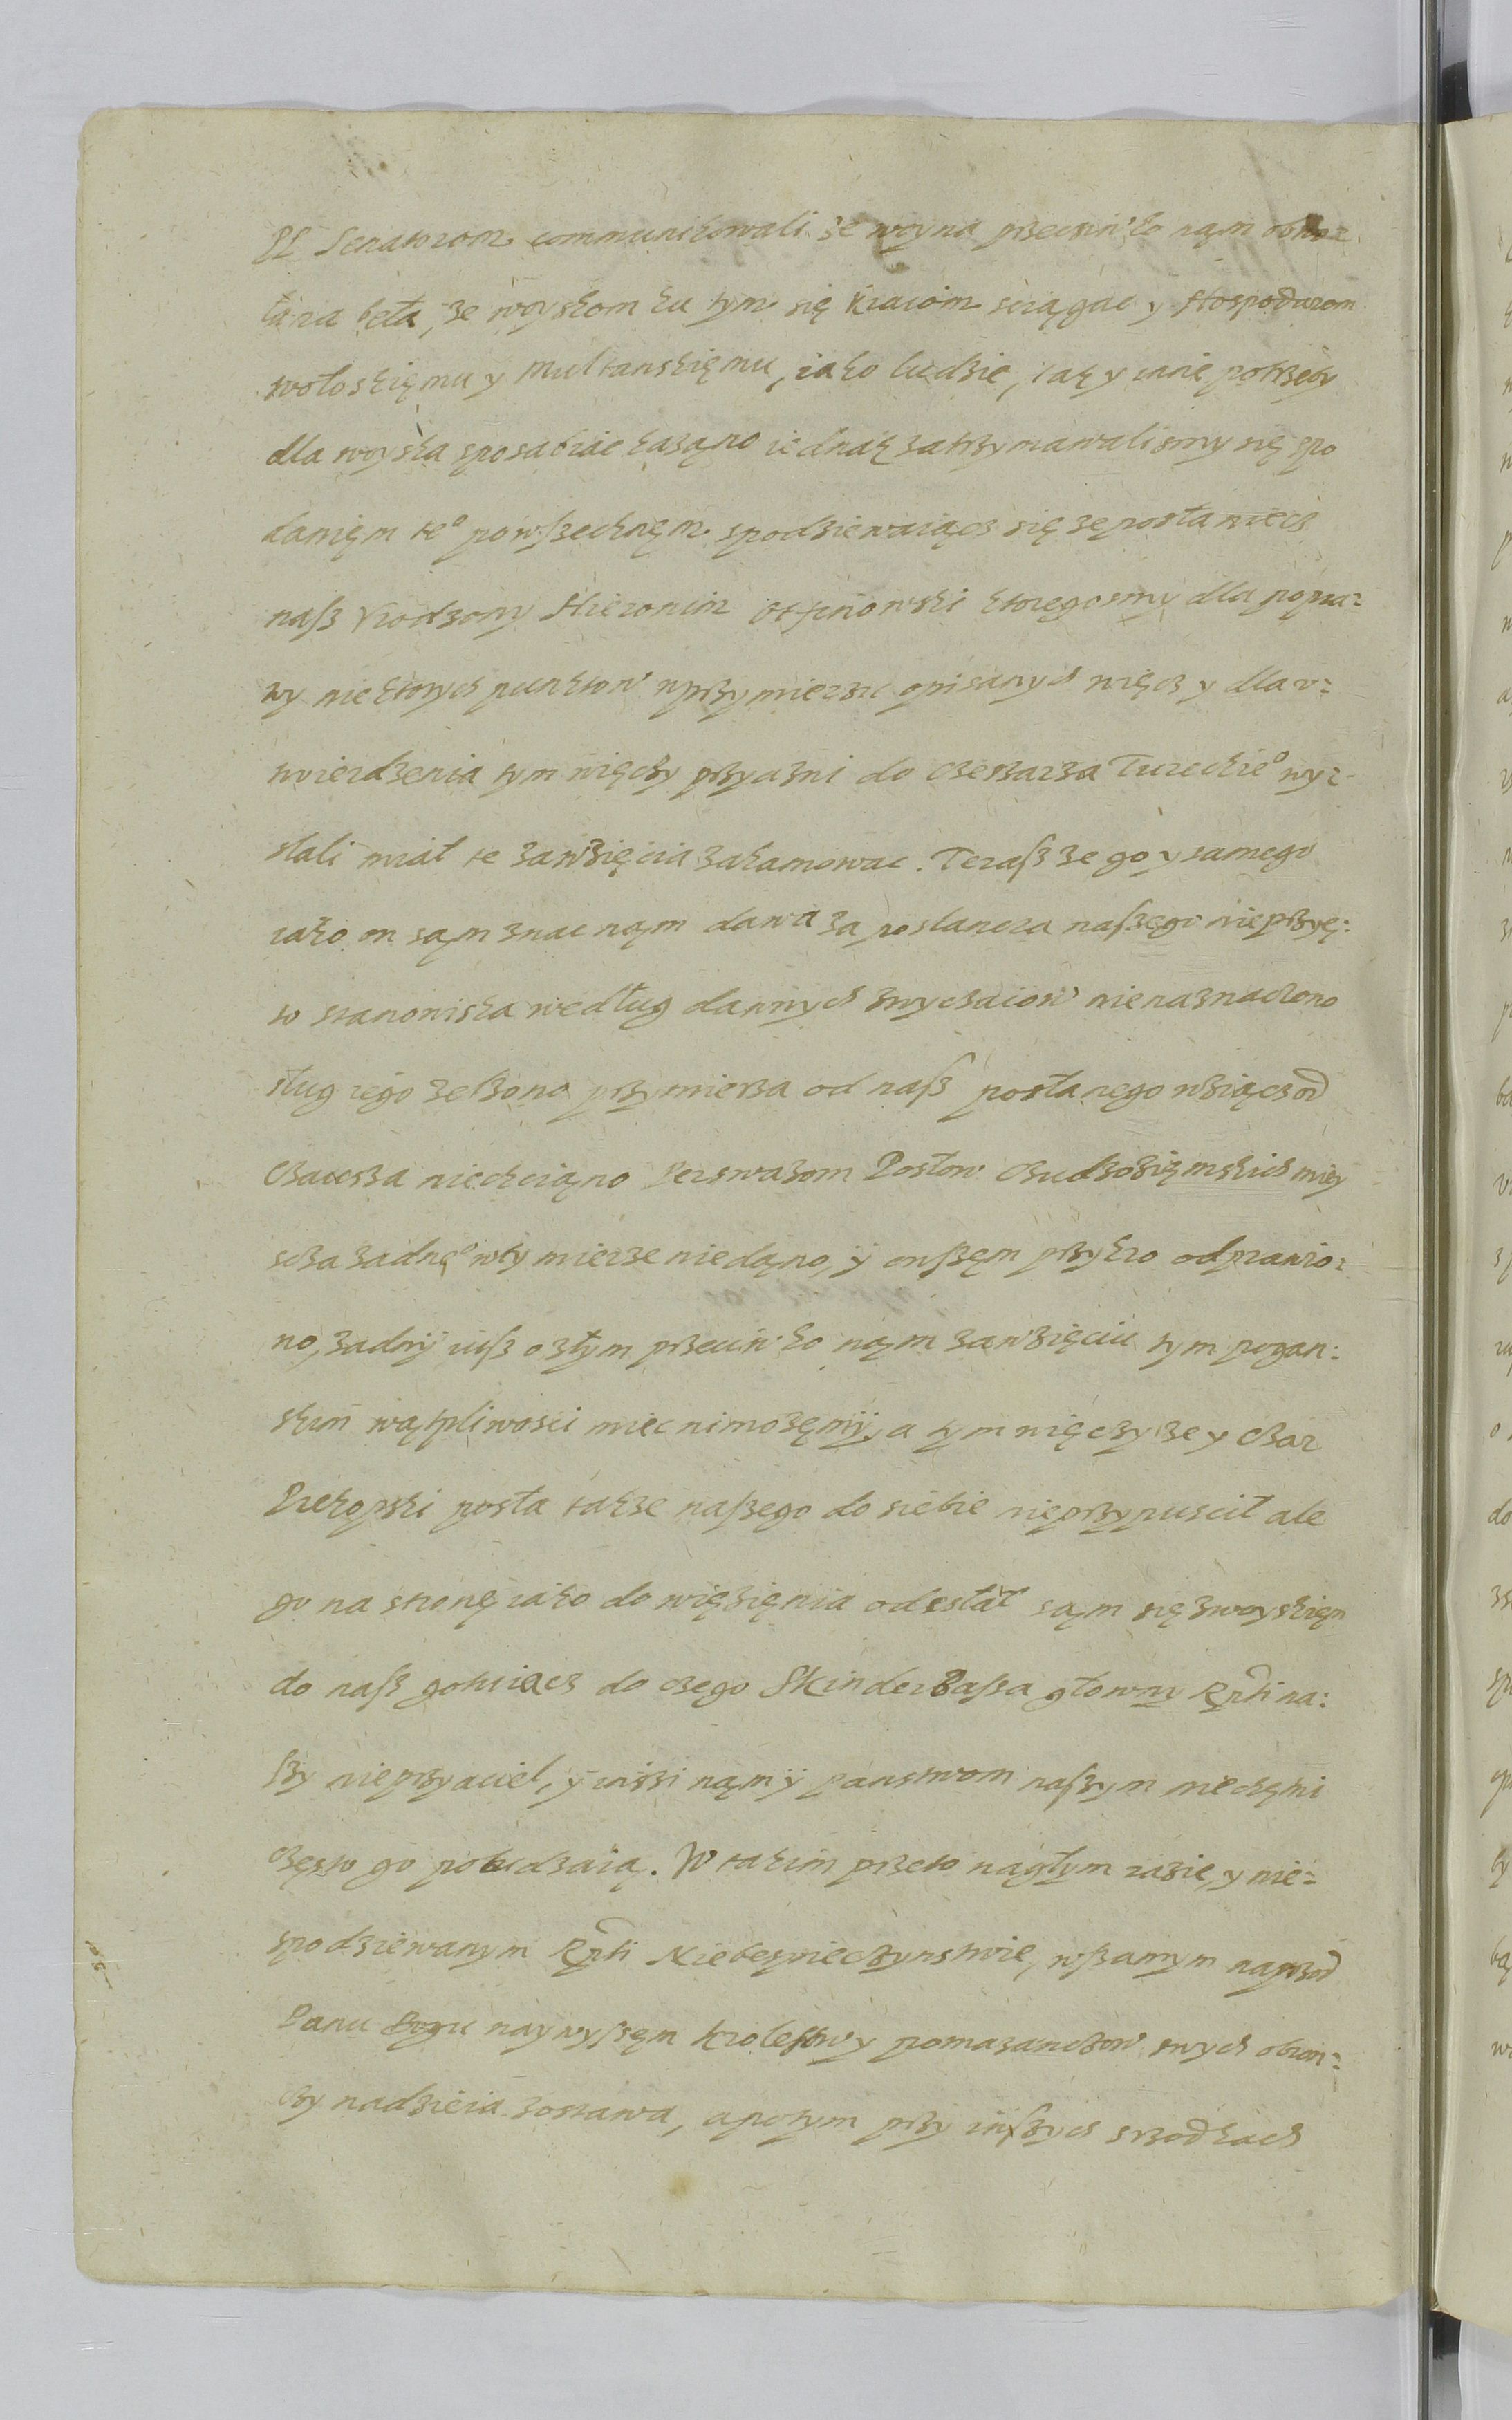 PP Senatorom communikowali że woyna przeciwko nąm obwoz
łana beła, że woyskom ku tym się kraiom sciągac y Hospodarom
wołoskięmu y Multanskięmu, iako ludzie, iak y inne potrzeby
dla woyska sposabiac kazano iednak zatrzymawalismy się spo
danięm te° powszechnęm spodziewaiącz się zę posłaniecz
nasz Vrodzony Hieronim Otfinowski ktoregosmy dla popra=
wy niektorych punktow wprzymierzu opisanych więcz y dla v=
twierdzenia tym więczy przyazni do Czesarza Tureckie° wy=
slali miał te zawzięcia zahamowac. Terasz że go y samego
iako on sąm znac nąm dawa za poslancza naszęgo nieprzyę:
to stanowiska według dawnych zwyczaiow nienaznaczono
sług iego zelżono przymierza od nasz posłanego wziącz od
Czausza niechciąno Perswazom Posłow Cudzozięmskich miey
scza żadnę° wty mierze niedąno, ÿ owszęm przykro odprawio=
no, żadnÿ iusz o złym przeciwko nąm zawzięciu tym pogan:
skim wątpliwosci miec nimożęmÿ, a tym więczy że y Czar
Prekopski posła także naszego do siebie nieprzypuscił ale
go na stronę iako do więzięnia odesłał sąm się zwoyskięm
do nasz gotuiącz do czego SkinderBasza głowny Rzpti na:
szy nieprzyaciel, ÿ inszi nąm ÿ panstwom naszym niechętni
często go pobudzaią. W takim przeto nagłym razie, y nie=
spodziewanym Rzpti Niebespieczynstwie, wszamym naprzod
Panu Bogu naywyszęm krolestw y pomazanczow swych obron=
czy nadzieia zostawa, apotym przy inszych srzodkach